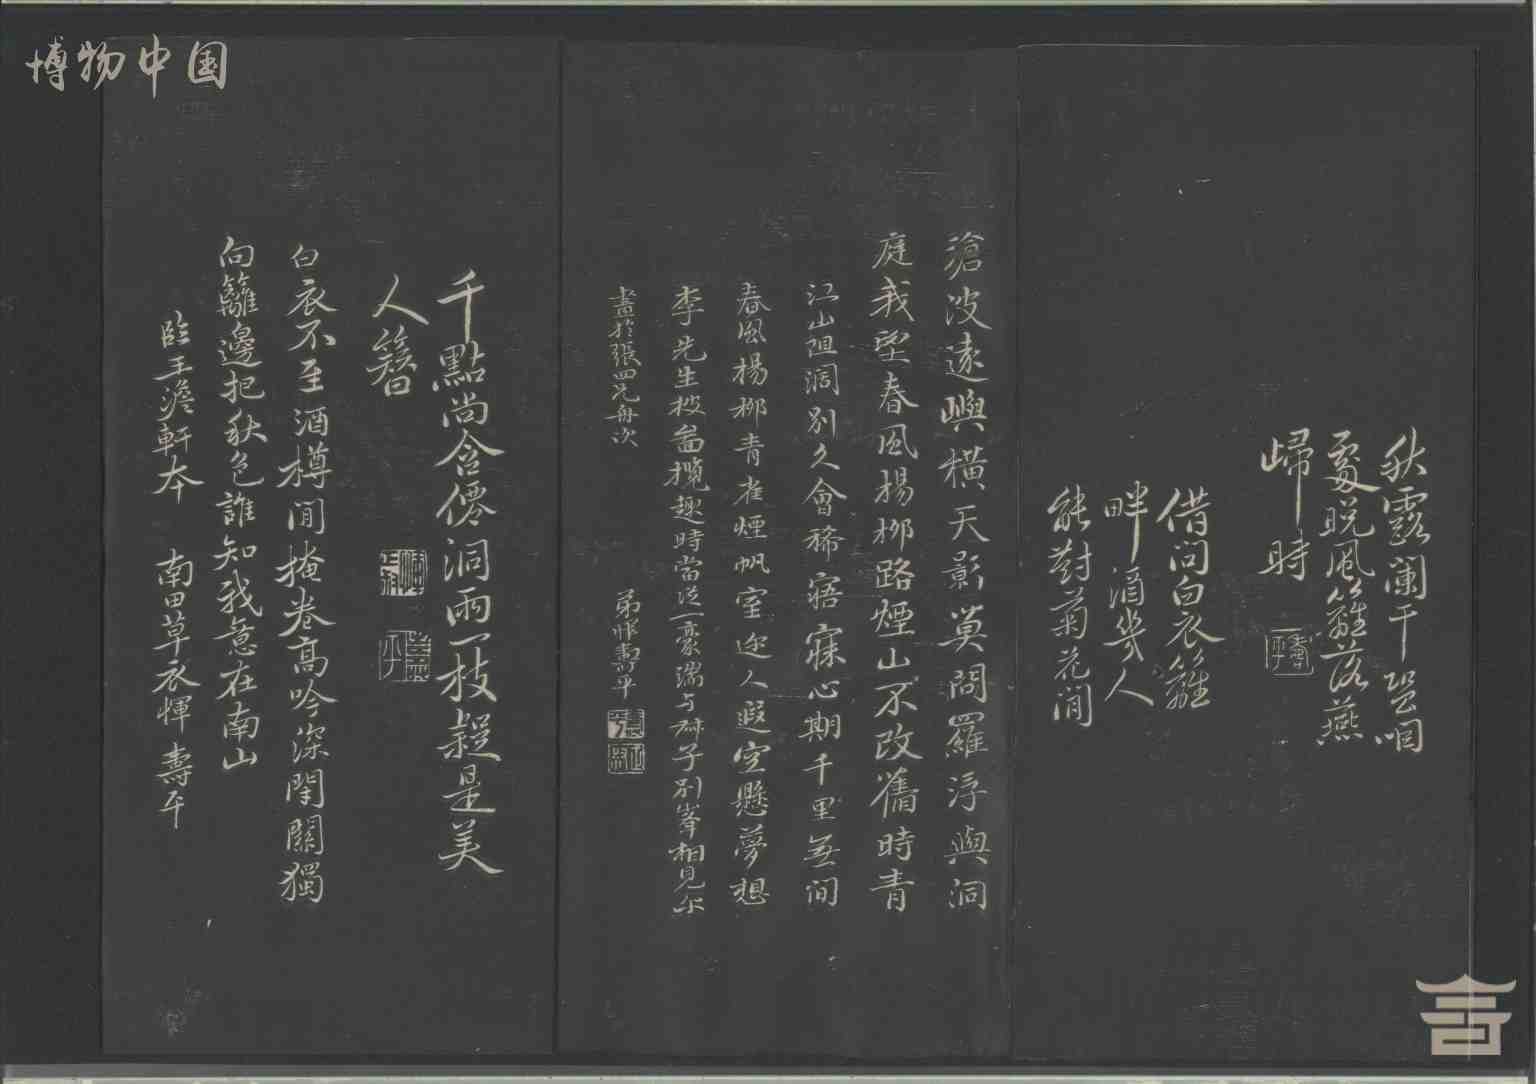 博物中国
秋露闌干蛩咽
處晚風籬落燕
歸時
借問白衣籬
畔酒幾人
能對菊花間
滄波遠嶼橫天影莫問羅浮與洞
庭我望春風楊柳路煙山不改舊時青
江山阻闊別久會稀寤寐心期千里無間
春風楊柳青雀煙帆室邇人遐空懸夢想
李先生披圖攬趣時當從一豪端与
子別峯相見尓
畫於張四兄舟次
弟惲壽平
千點尚含僊洞雨一枝疑是美
人簪
白衣不至酒樽閒掩卷高吟深閉關獨
向籬邊把秋色誰知我意在南山
臨王澹軒本 南田草衣惲壽平